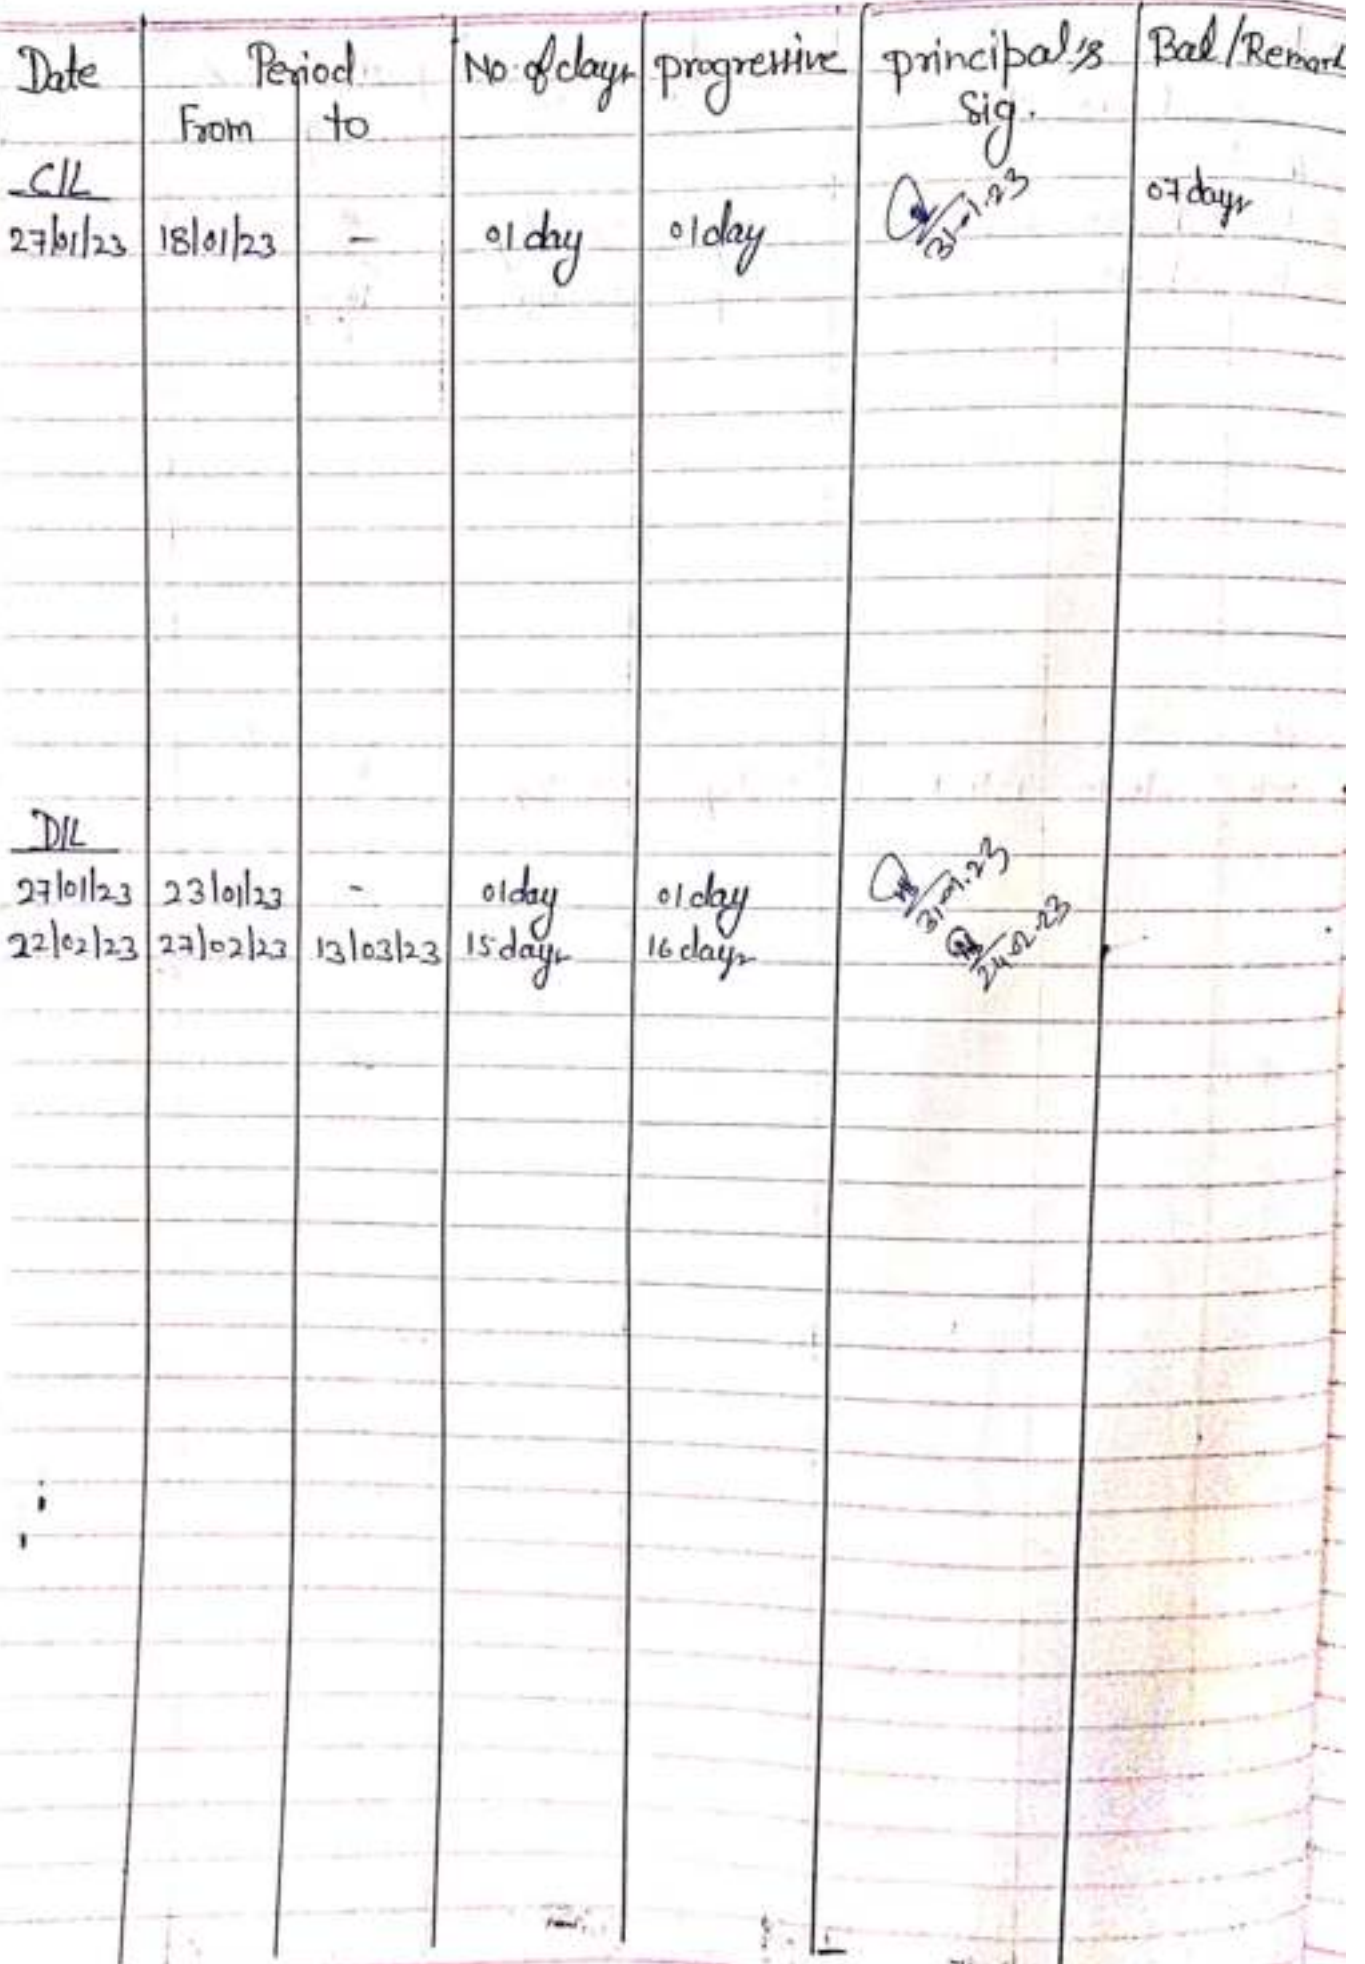 Date Period No. of days progressive principal's Bal/Remark
From to Sig.
C/L
27/01/23 18/01/23 - 01 day 01 day 31-1-23 07 days
D/L
27/01/23 23/01/23 - 01 day 01 day 31-01-23
22/02/23 27/02/23 13/03/23 15 days 16 days 24-02-23